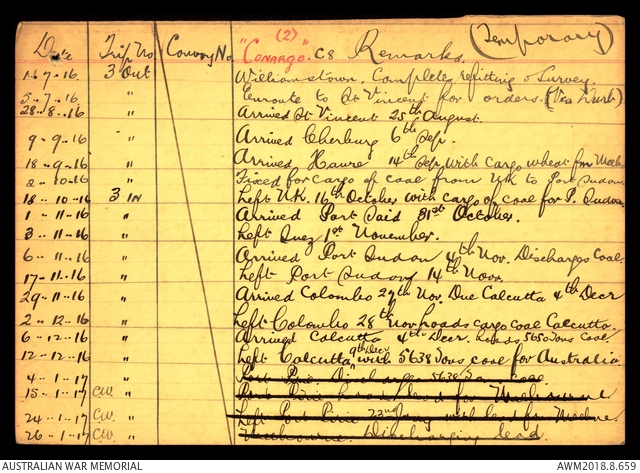 (2) (Temporary)
Date Trip No Convoy No. "CONARGO" C8 Remarks.
1-7-16 3 Out Williamstown, Completes refitting & Survey.
5-7-16 " Enroute to St Vincent for orders. (Via
28-8-16 " Arrived St Vincent 25th August.
9-9-16 " Arrived Cherburg 6th Sep.
18-9-16 " Arrived Havre 14th Sep. With cargo wheat from Melb.
2-10-16 " Fixed for cargo of coal from UK to Port Sudan.
18-10-16 3 IN Left U.K. 16th October with cargo of coal for P. Sudan.
1-11-16 " Arrived Port Said 31st October.
3-11-16 " Left Suez 1st November.
6-11-16 " Arrived Port Sudan 4th Nov. Discharges Coal.
17-11-16 " Left Port Sudan 14th Nov.
29-11-16 " Arrived Colombo 27th Nov. Due Calcutta 4th Decr
2-12-16 " Left Colombo 28th Nov. Loads cargo coal Calcutta.
6-12-16 " Arrived Calcutta 4th Decr. Loads 5650 Tons Coal.
12-12-16 " Left Calcutta 9th Decr with 5638 Tons coal for Australia.
4-1-17 " Port Pirie Discharges 5638 Tons Coal.
15-1-17 C.W. Port Pirie Loads lead for Melbourne
24-1-17 C.W. Left Port Pirie 23rd Jany with lead for Melbne.
26-1-17 C.W. Melbourne, Discharging lead.
AUSTRALIAN WAR MEMORIAL AWM2018.8.659